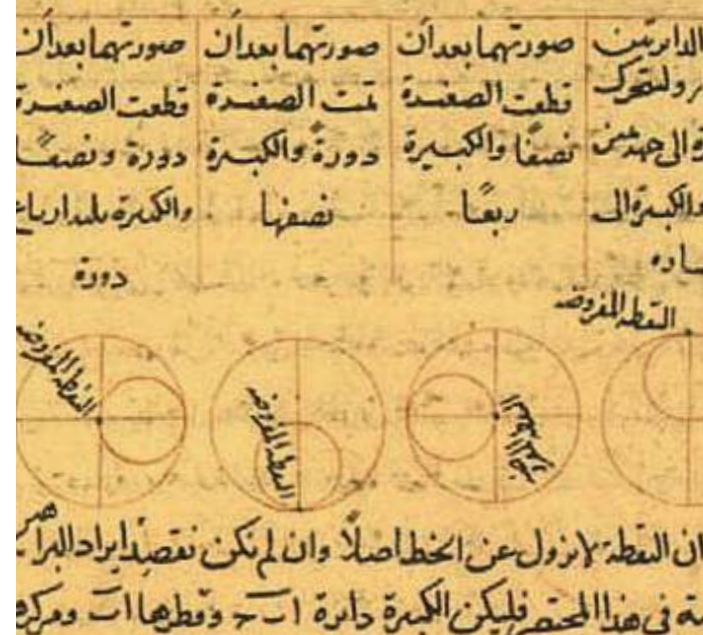 الدايرتين
ولتتحرك
ة الى جهة يمين
والكبيرة الى
ساره
صورتهما بعد أن
قطعت الصغيرة
نصفًا والكبيرة
ربعًا
صورتهما بعد أن
تمت الصغيرة
دورةً والكبيرة
نصفها
صورتهما بعد أن
قطعت الصغيرة
دورة ونصفًا
والكبيرة ثلثه ارباع
دورة
النقطه المفروضه
النقطه المفروضه
النقطه المفروضه
ان النقطة لا تزول عن الخط اصلًا وان لم نكن نقصد ايراد البراهين
فى هذا المختصر فليكن الكبيرة دايرة ا ب ج وقطرها ا ب ومركزها